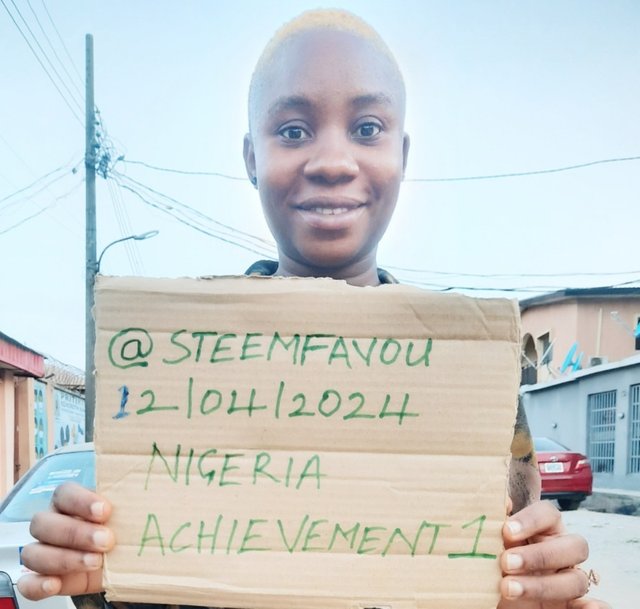 @STEEMFAVOU
12/04/2024
NIGERIA
ACHIEVEMENT 1